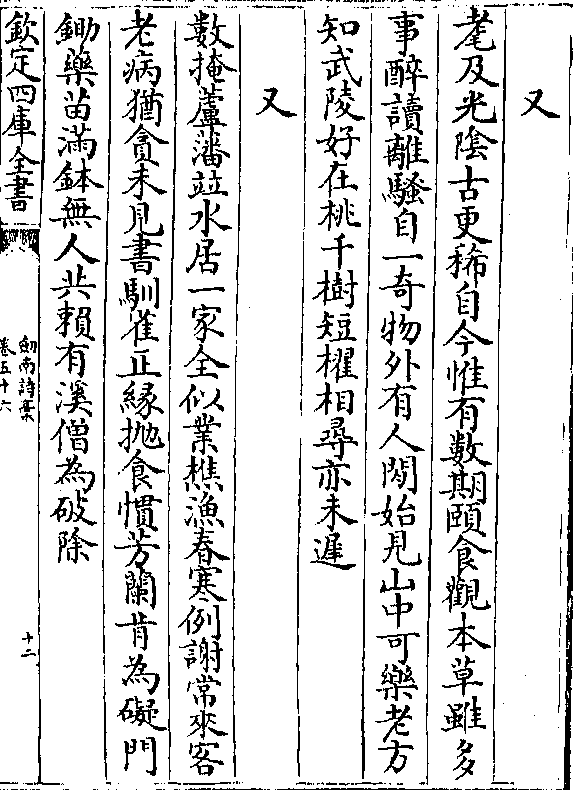 又
耄及光陰古更稀自今惟有數期頤食觀本草雖多
事醉讀離騷自一奇物外有人閱始見山中可樂老方
知武陵好在桃千樹短櫂相尋亦未遲
又
數掩蘆藩竝水居一家全似業樵漁春寒例謝常來客
老病猶貪未見書馴雀正緣抛食慣芳蘭肯為礙門
鋤藥苗滿鉢無人共賴有溪僧為破除
欽定四庫全書
劍南詩稾
卷五十六
十二